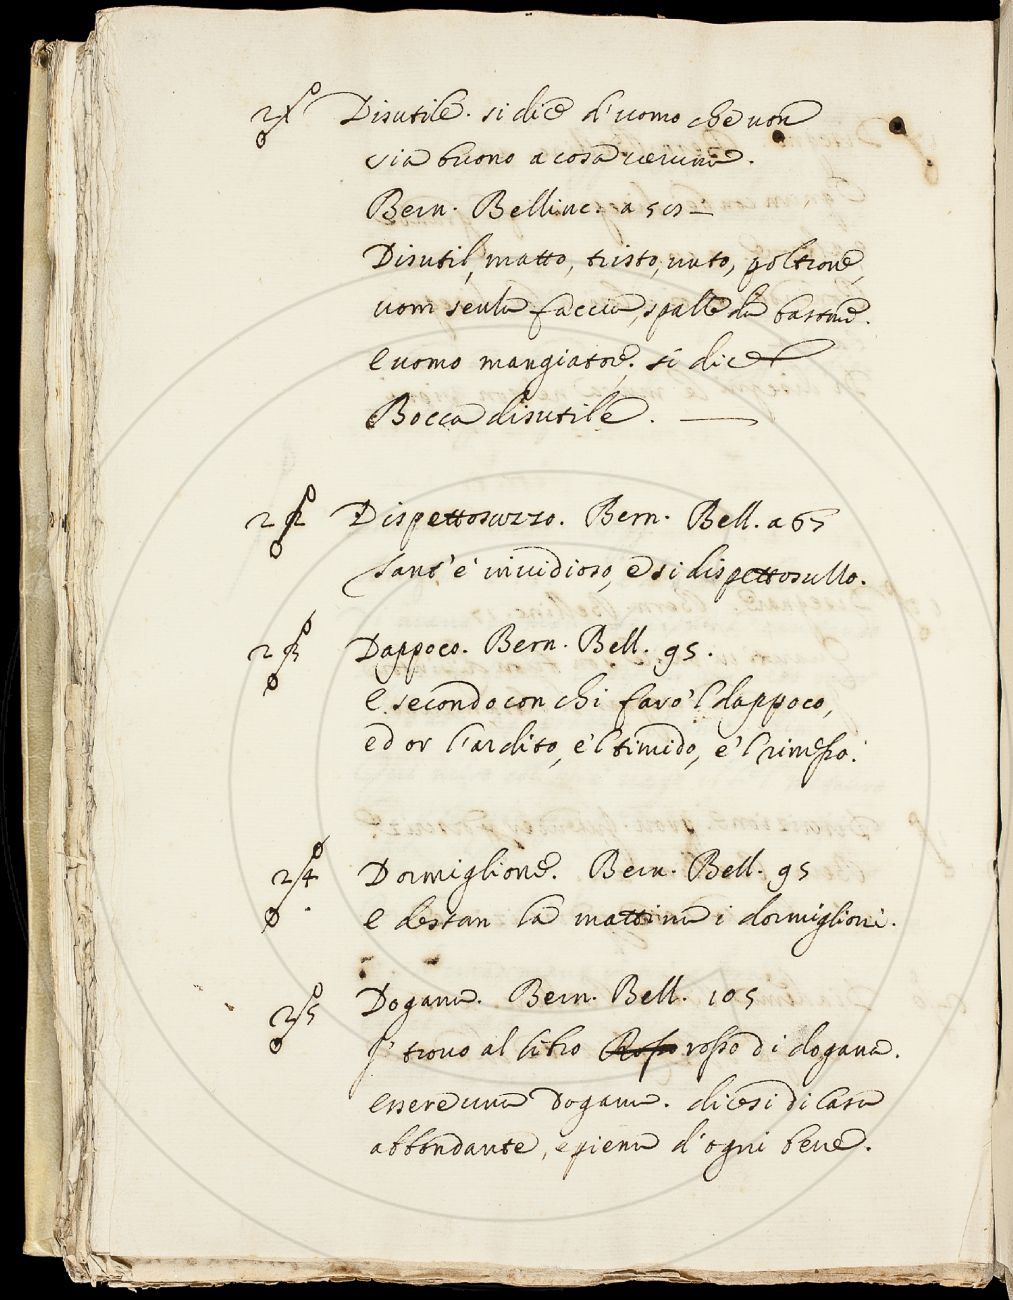 21 Disutile. si dice d'uomo che non
sia buono a cosa veruna.
Bern. Bellinc. a
Disutil, matto, tristo, nato, poltrone,
uom senza faccia, spalle da bastone.
E uomo mangiatore. si dice
Bocca disutile.
22 Dispettosuzzo. Bern. Bell. a 65
sant' è invidioso, e si dispettosullo.
23 Dappoco. Bern. Bell. 95.
E secondo con chi farò 'l dappoco,
ed or l'ardito, e 'l timido, e 'l rimesso.
24 Dormiglione. Bern. Bell. 95
E destan la mattina i dormiglioni.
25 Dogana. Bern. Bell. 105
I' trovo al libro Rosso rosso di dogana.
essere una Dogana. dicesi di Casa
abbondante, e piena d'ogni bene.